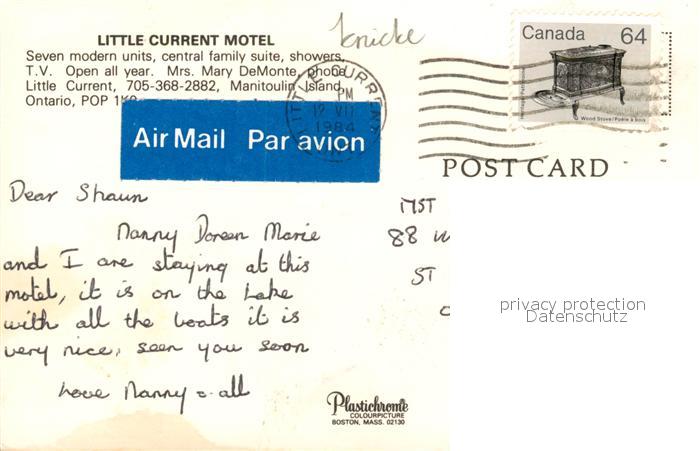 LITTLE CURRENT MOTEL
Seven modern units, central family suite, showers,
T.V. Open all year. Mrs. Mary DeMonte, phone
Little Current, 705-368-2882, Manitoulin Island,
Ontario, POP 1K0
knicke
Canada 64
Wood Stove/Poêle à bois
LITTLE CURRENT
PM
12 VII
1984
Air Mail Par avion
POST CARD
Dear Shaun
Nanny Doreen Marie
and I are staying at this
motel, it is on the Lake
with all the boats it is
very nice, seen you soon
Love Nanny & all
MST
88 W
ST
privacy protection
Datenschutz
Plastichrome
COLOURPICTURE
BOSTON, MASS. 02130